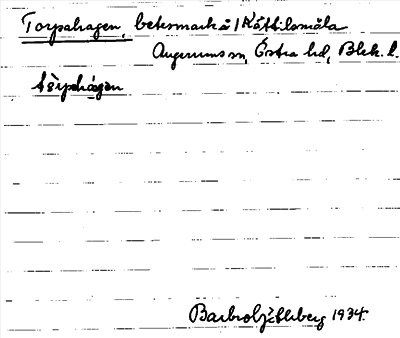 Torpahagen, betesmark å 1 Kättilsmåla
Augerums sn, Östra hd, Blek. l.
tòrpahágen
Barbro 1934